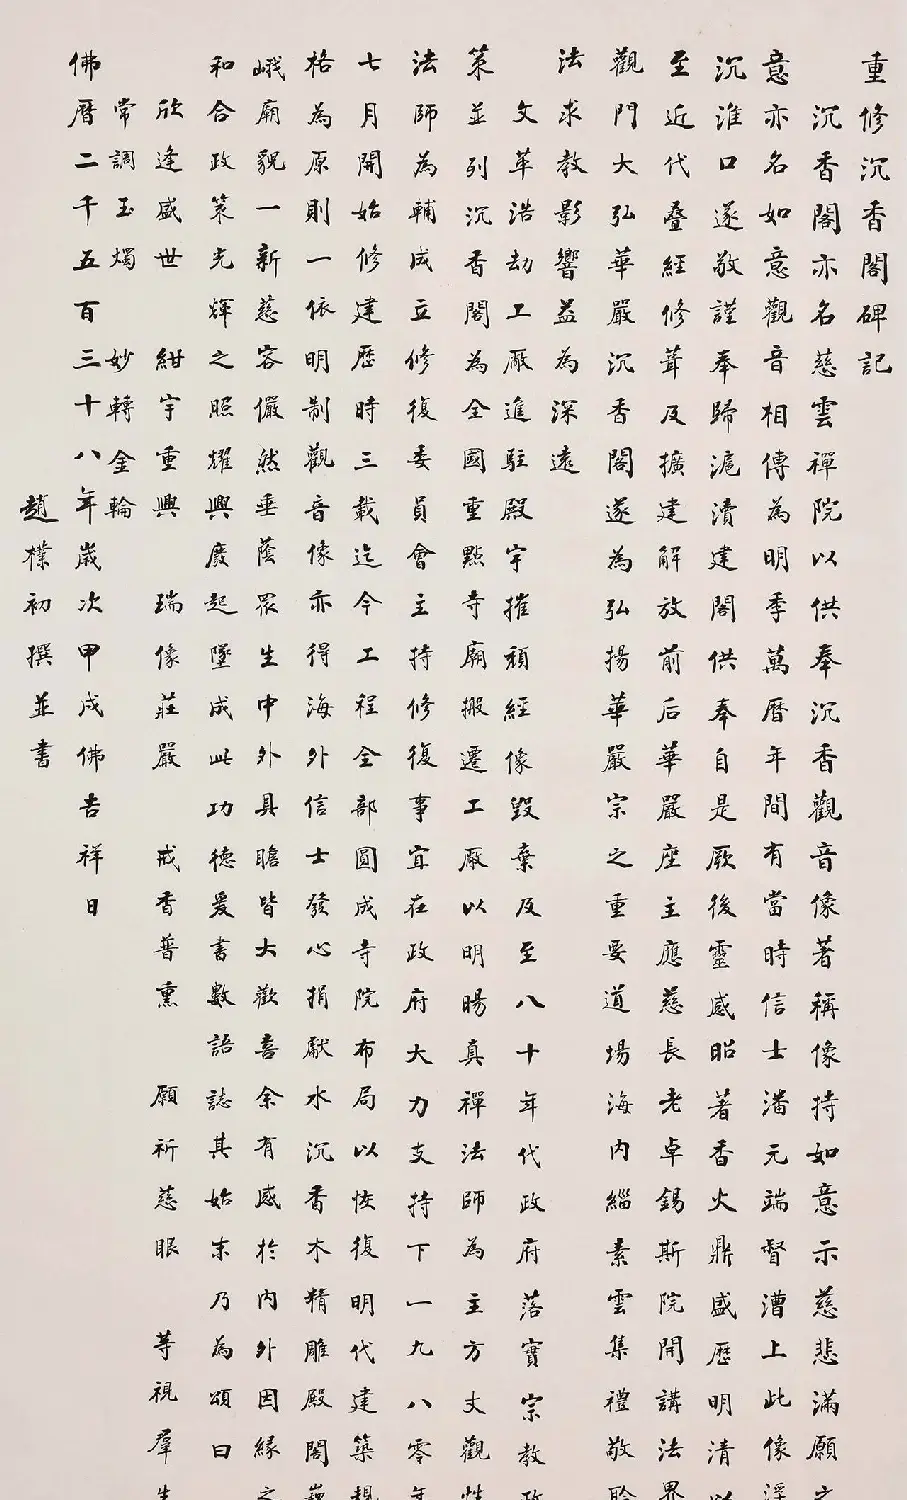 重修沉香閣碑記
沉香閣亦名慈雲禪院以供奉沉香觀音像著稱像持如意示慈悲滿願之
意亦名如意觀音相傳為明季萬曆年間有當時信士潘元端督漕上此像浮
沉淮口遂敬謹奉歸滬瀆建閣供奉自是厥後靈感昭著香火鼎盛歷明清以
至近代疊經修葺及擴建解放前后華嚴座主應慈長老卓錫斯院開講法界
觀門大弘華嚴沉香閣遂為弘揚華嚴宗之重要道場海內緇素雲集禮敬聆
法求教影響益為深遠
文革浩劫工廠進駐殿宇摧頹經像毀棄及至八十年代政府落實宗教政
策並列沉香閣為全國重點寺廟搬遷工廠以明暘真禪法師為主方丈觀性
法師為輔成立修復委員會主持修復事宜在政府大力支持下一九八零年
七月開始修建歷時三載迄今工程全部圓成寺院布局以恢復明代建築規
格為原則一依明制觀音像亦得海外信士發心捐獻水沉香木精雕殿閣巍
峨廟貌一新慈容儼然垂蔭眾生中外具瞻皆大歡喜余有感於內外因緣之
和合政策光輝之照耀興廢起墜成此功德爰書數語誌其始末乃為頌曰
欣逢盛世 紺宇重興 瑞像莊嚴 戒香普熏 願祈慈眼 等視羣生
常調玉燭 妙轉金輪
佛曆二千五百三十八年歲次甲戌佛吉祥日
趙樸初撰並書